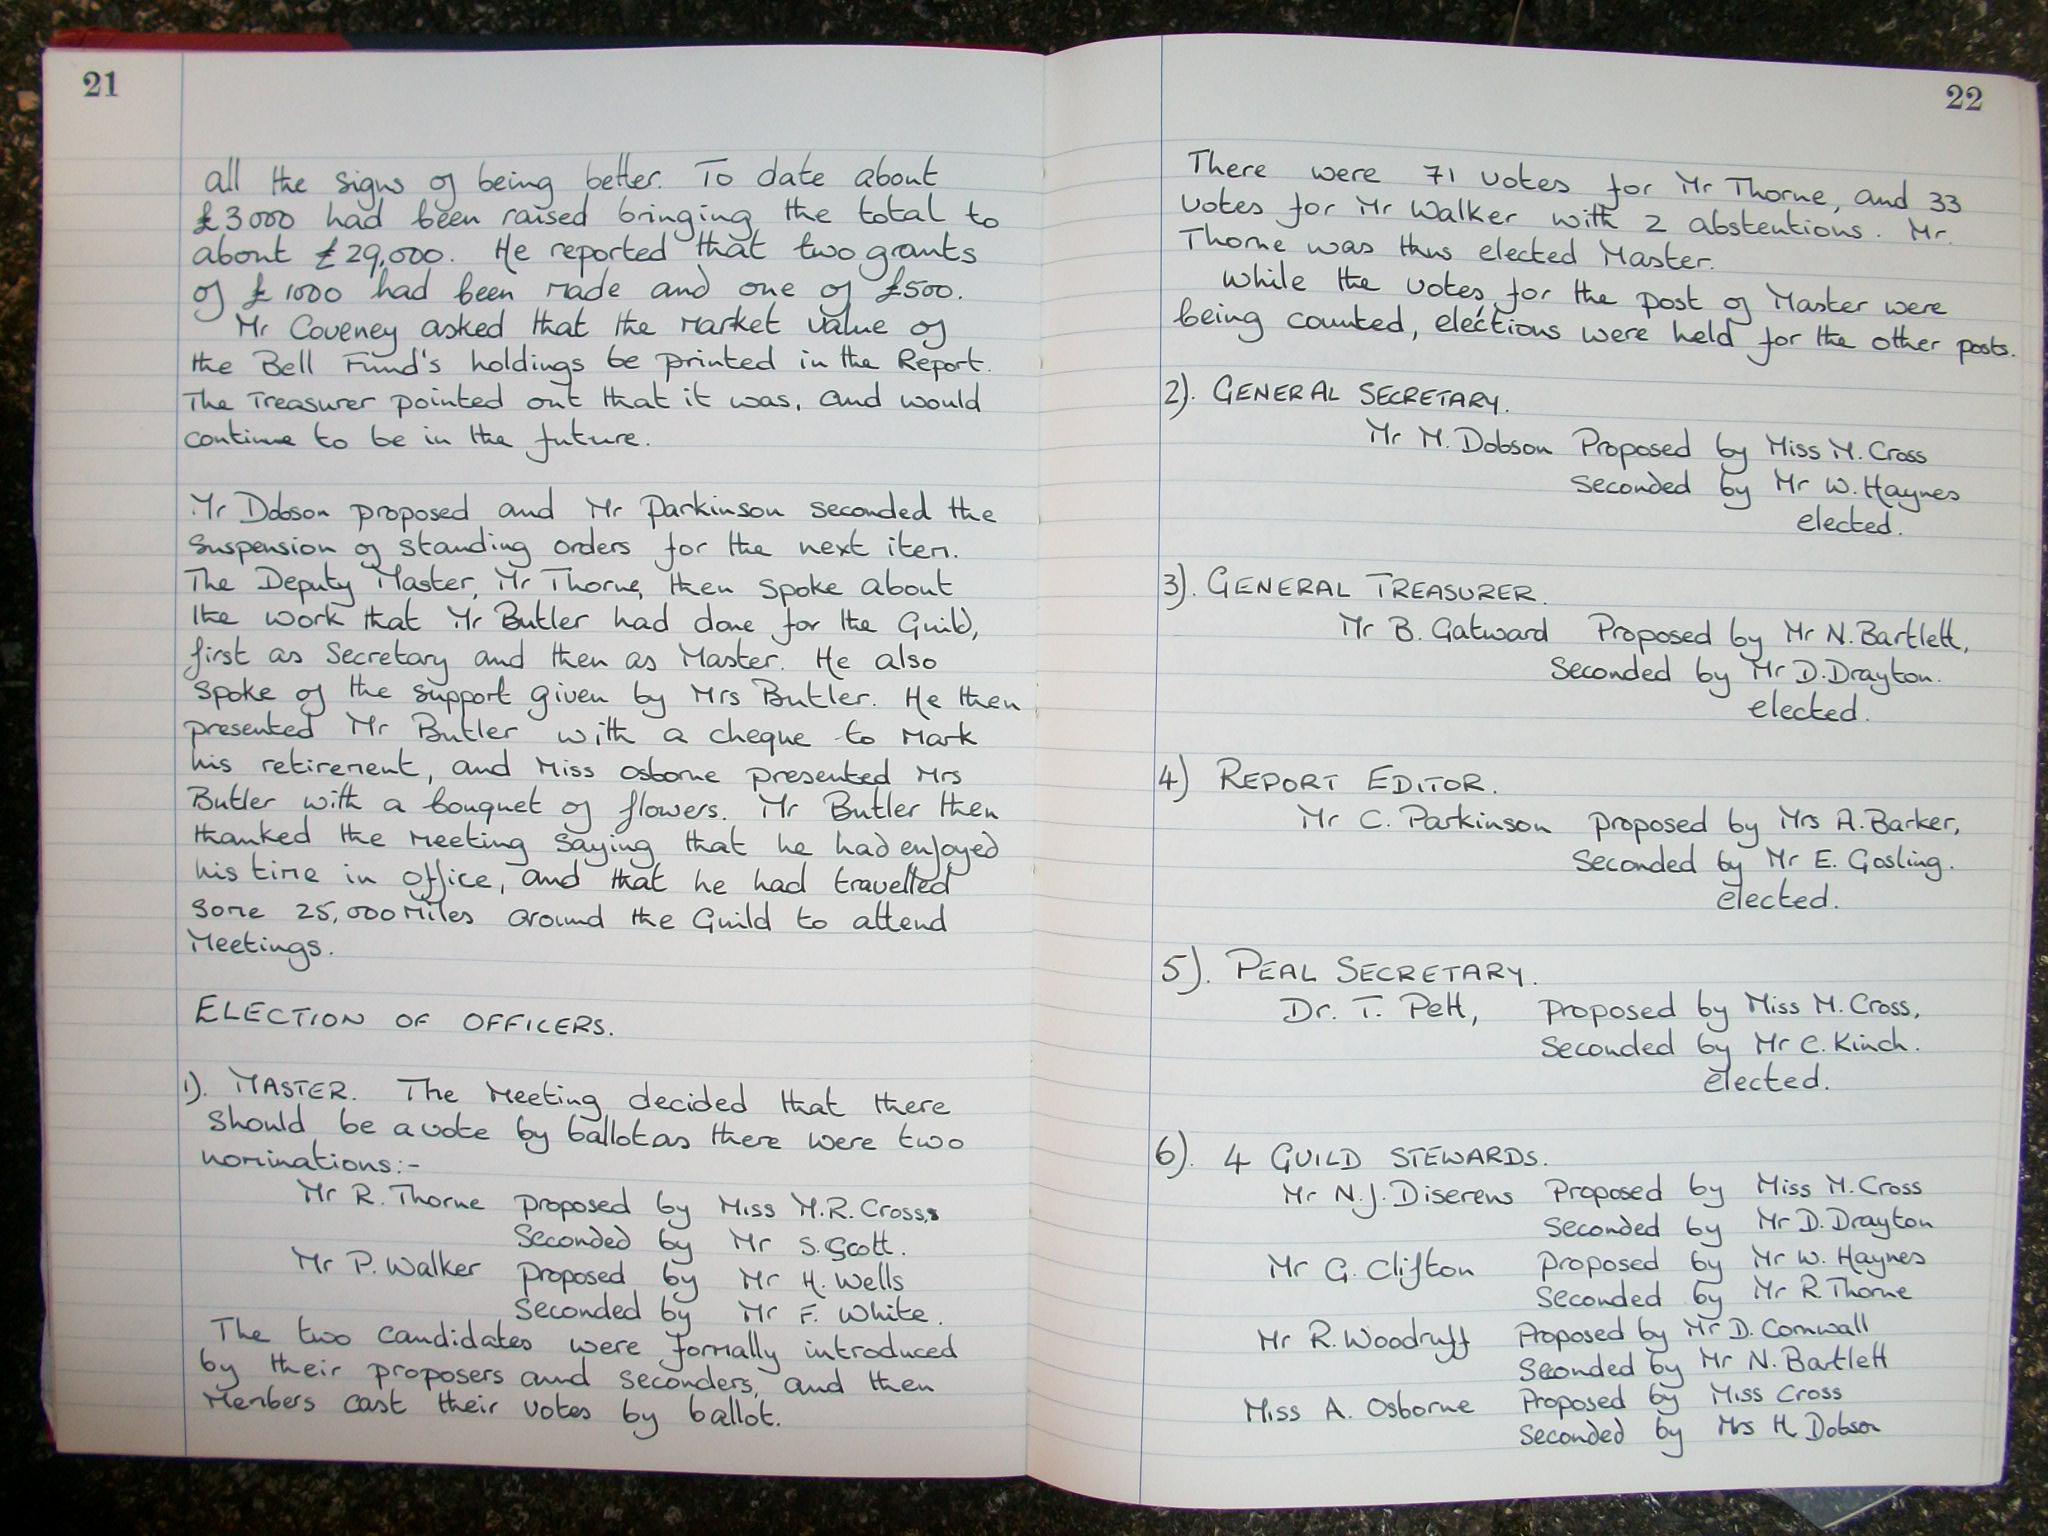 21
all the signs of being better. To date about
£3000 had been raised bringing the total to
about £29,000. He reported that two grants
of £1000 had been made and one of £500.
Mr Coveney asked that the market value of
the Bell Fund's holdings be printed in the Report.
The Treasurer pointed out that it was, and would
continue to be in the future.
Mr Dobson proposed and Mr Parkinson seconded the
suspension of standing orders for the next item.
The Deputy Master, Mr Thorne, then spoke about
the work that Mr Butler had done for the Guild,
first as Secretary and then as Master. He also
spoke of the support given by Mrs Butler. He then
presented Mr Butler with a cheque to mark
his retirement, and Miss Osborne presented Mrs
Butler with a bouquet of flowers. Mr Butler then
thanked the meeting saying that he had enjoyed
his time in office, and that he had travelled
some 25,000 miles around the Guild to attend
Meetings.
ELECTION OF OFFICERS.
1). MASTER. The Meeting decided that there
should be a vote by ballot as there were two
nominations:-
Mr R. Thorne proposed by Miss M.R. Cross,
Seconded by Mr S. Scott.
Mr P. Walker proposed by Mr H. Wells
Seconded by Mr F. White.
The two candidates were formally introduced
by their proposers and seconders, and then
Members cast their votes by ballot.
22
There were 71 votes for Mr Thorne, and 33
votes for Mr Walker with 2 abstentions. Mr.
Thorne was thus elected Master.
While the votes for the post of Master were
being counted, elections were held for the other posts.
2). GENERAL SECRETARY.
Mr M. Dobson Proposed by Miss M. Cross
Seconded by Mr W. Haynes
elected.
3). GENERAL TREASURER.
Mr B. Gatward Proposed by Mr N. Bartlett,
Seconded by Mr D. Drayton.
elected.
4) REPORT EDITOR.
Mr C. Parkinson proposed by Mrs A. Barker,
Seconded by Mr E. Gosling.
elected.
5). PEAL SECRETARY.
Dr. T. Pett, proposed by Miss M. Cross,
Seconded by Mr C. Kinch.
elected.
6). 4 GUILD STEWARDS.
Mr N.J. Diserens Proposed by Miss M. Cross
Seconded by Mr D. Drayton
Mr G. Clifton Proposed by Mr W. Haynes
Seconded by Mr R. Thorne
Mr R. Woodruff Proposed by Mr D. Cornwall
Seconded by Mr N. Bartlett
Miss A. Osborne Proposed by Miss Cross
Seconded by Mrs H Dobson